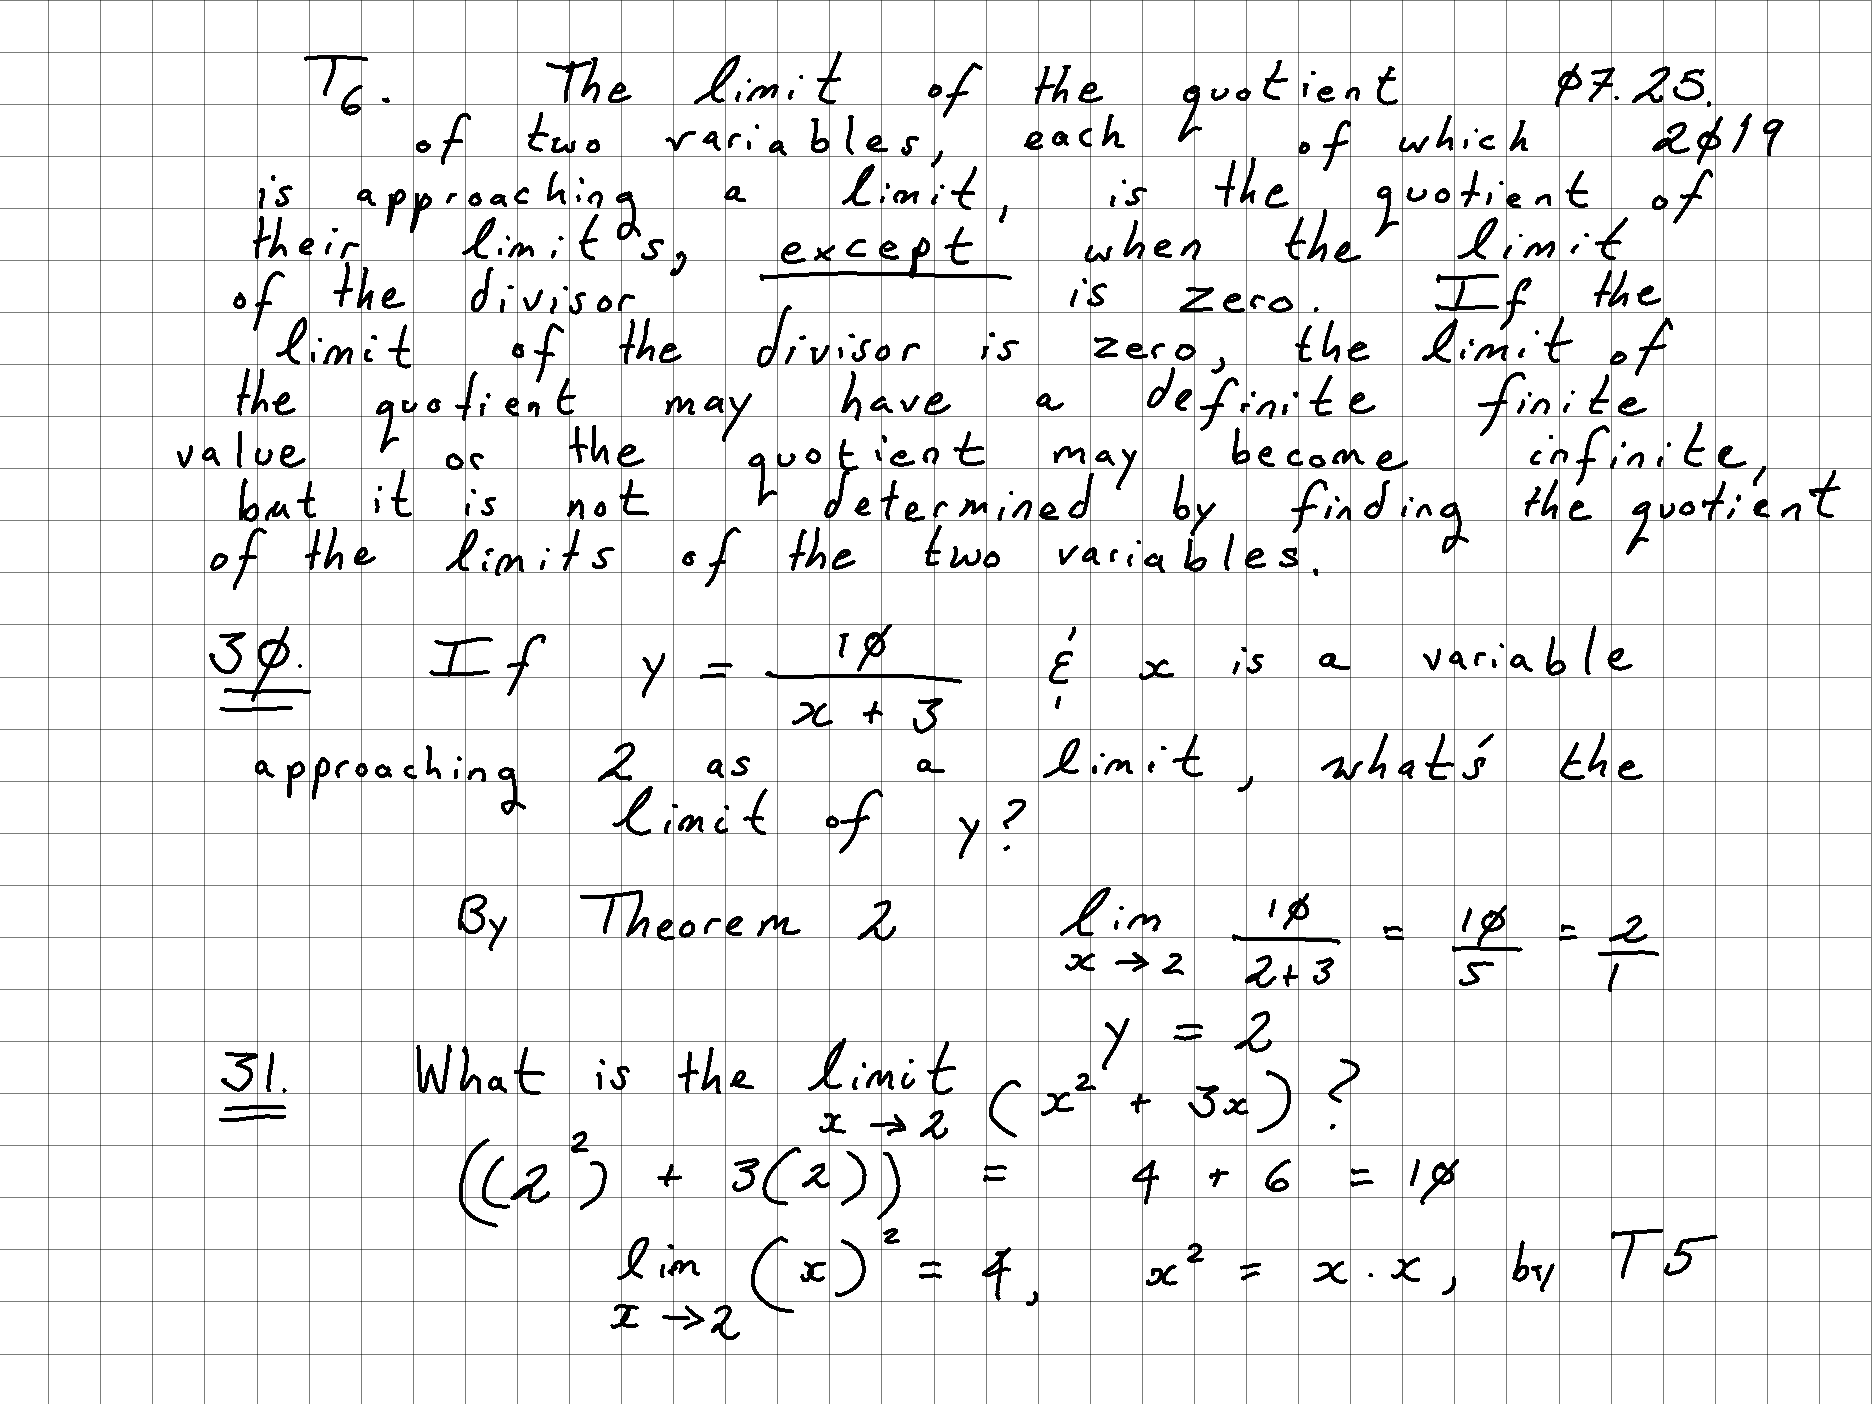 T6. The limit of the quotient 07.25.
of two variables, each of which 2019
is approaching a limit, is the quotient of
their limits, except when the limit
of the divisor is zero. If the
limit of the divisor is zero, the limit of
the quotient may have a definite finite
value or the quotient may become infinite,
but it is not determined by finding the quotient
of the limits of the two variables.
30. If y = 10/(x + 3) & x is a variable
approaching 2 as a limit, what's the
limit of y?
By Theorem 2 lim x→2 10/(2+3) = 10/5 = 2/1
y = 2
31. What is the limit x→2 (x² + 3x)?
((2²) + 3(2)) = 4 + 6 = 10
lim x→2 (x)² = 4, x² = x·x, by T5